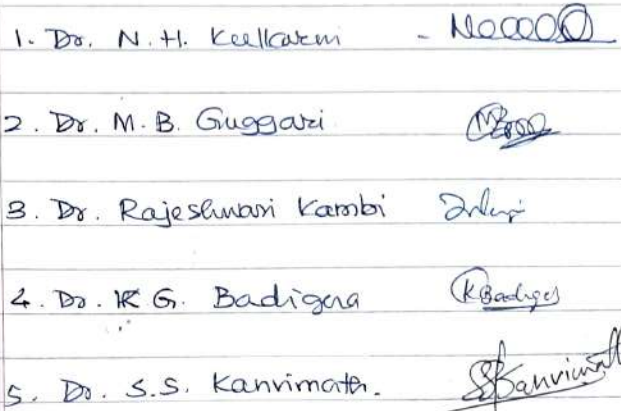 1. Dr. N. H. Kullkarni
2. Dr. M. B. Guggari
3. Dr. Rajeshwari Kambi
4. Dr. K G. Badigera KBadiger
5. Dr. S. S. Kanvimath.